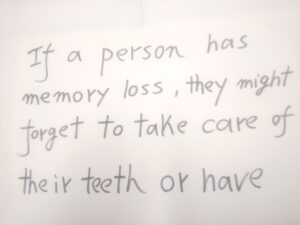 If a person has
memory loss, they might
forget to take care of
their teeth or have